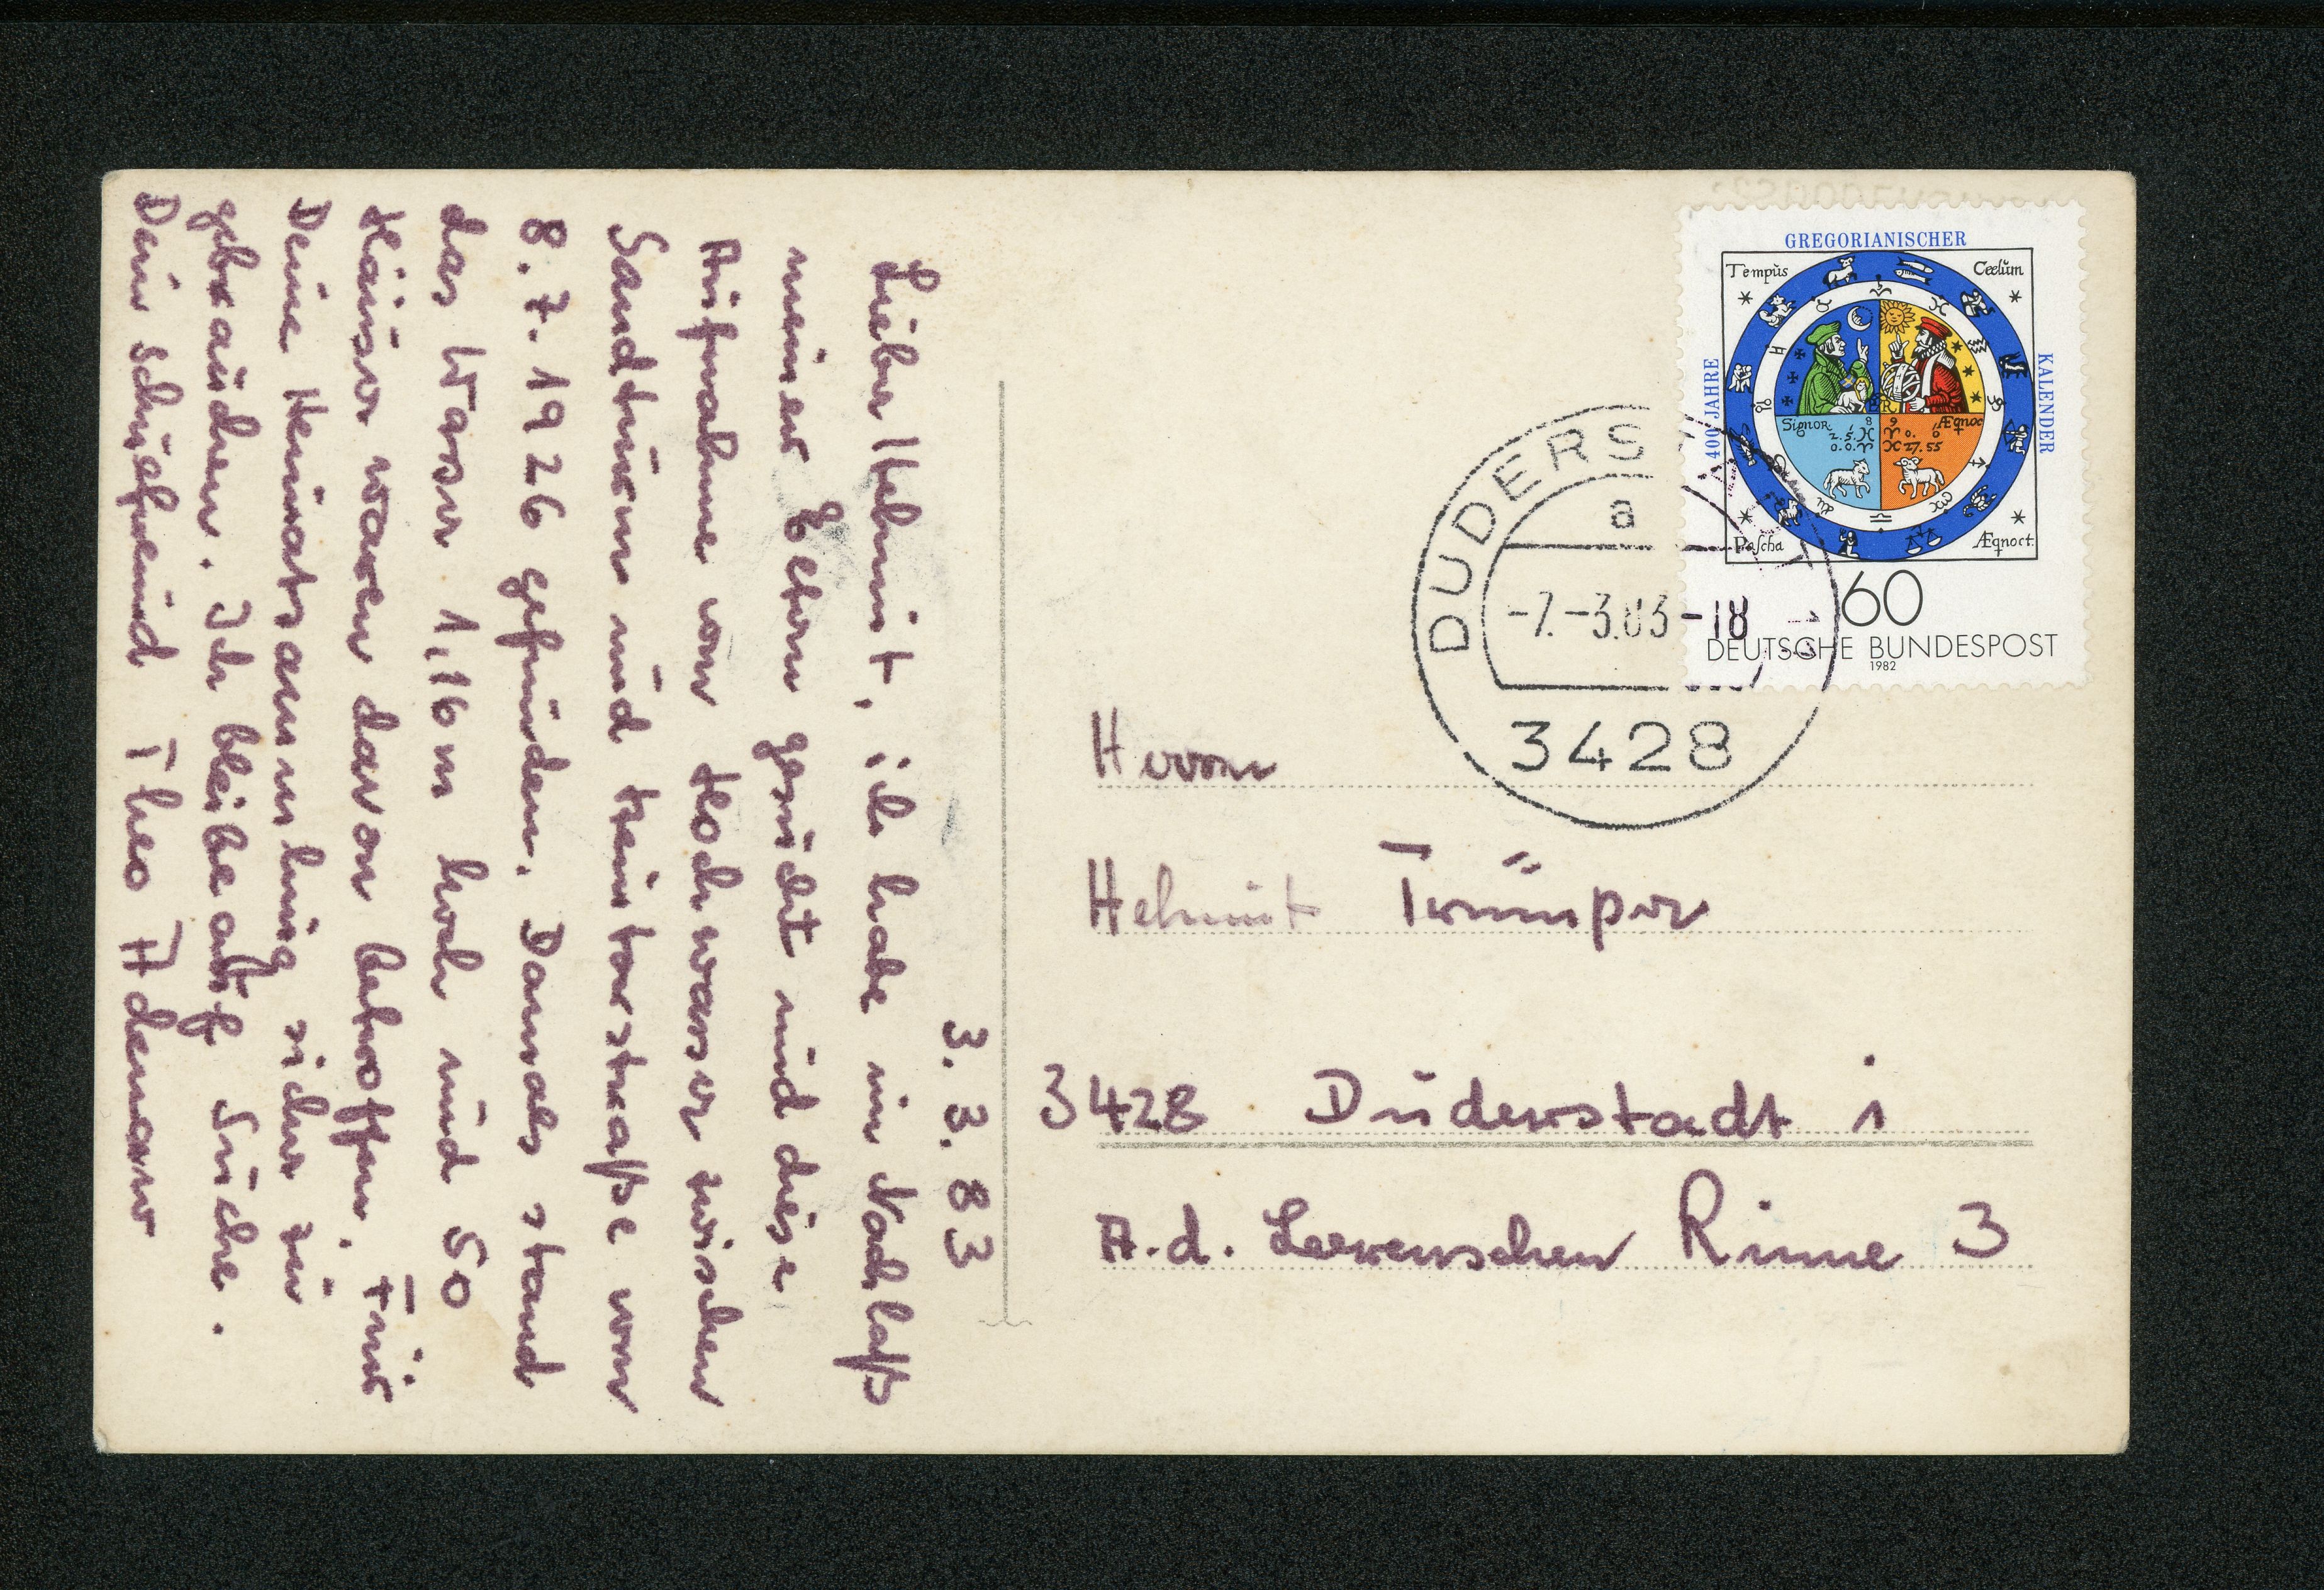 3.3.83
Lieber Helmut, ich habe im Nachlaß
meiner Eltern gesucht und diese
Aufnahme vom Hochwasser zwischen
Sandturm und Kleintorstraße vom
8.7.1926 gefunden. Damals stand
das Wasser 1,16 m hoch und 50
Häuser waren davon betroffen. Für
Deine Heimatsammlung sicher zu
gebrauchen. Ich bleibe auf Suche.
Dein Schulfreund Theo Ademar
GREGORIANISCHER
400 JAHRE
KALENDER
Tempus
Coelum
Signor
Æqnoc
BR
2.5.
0.0.
27.55
Pascha
Æqnoct.
60
DEUTSCHE BUNDESPOST
1982
DUDERSTADT 1
a
-7.-3.83-18
3428
Herrn
Helmut Trümper
3428 Duderstadt 1
A.d. Leerenschen Rinne 3